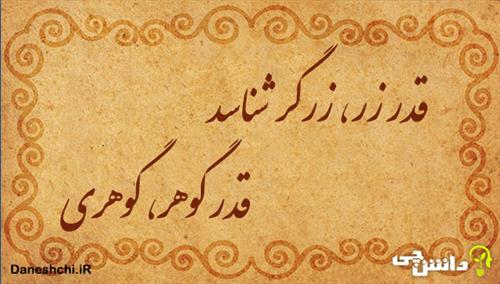 قدر زر، زرگر شناسد
قدر گوهر، گوهری
دانش‌چی
Daneshchi.iR